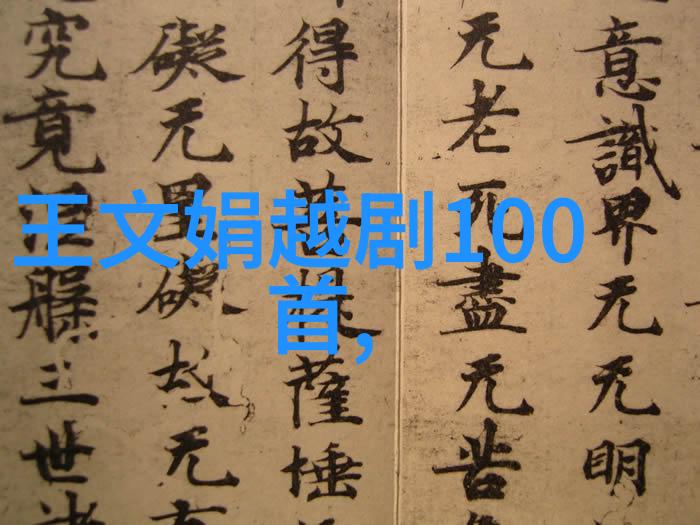 王文娟越剧100
首,
意識界无无明
无老死盡无苦
得故菩提薩埵
礙无罣礙故无有
究竟涅槃三世諸